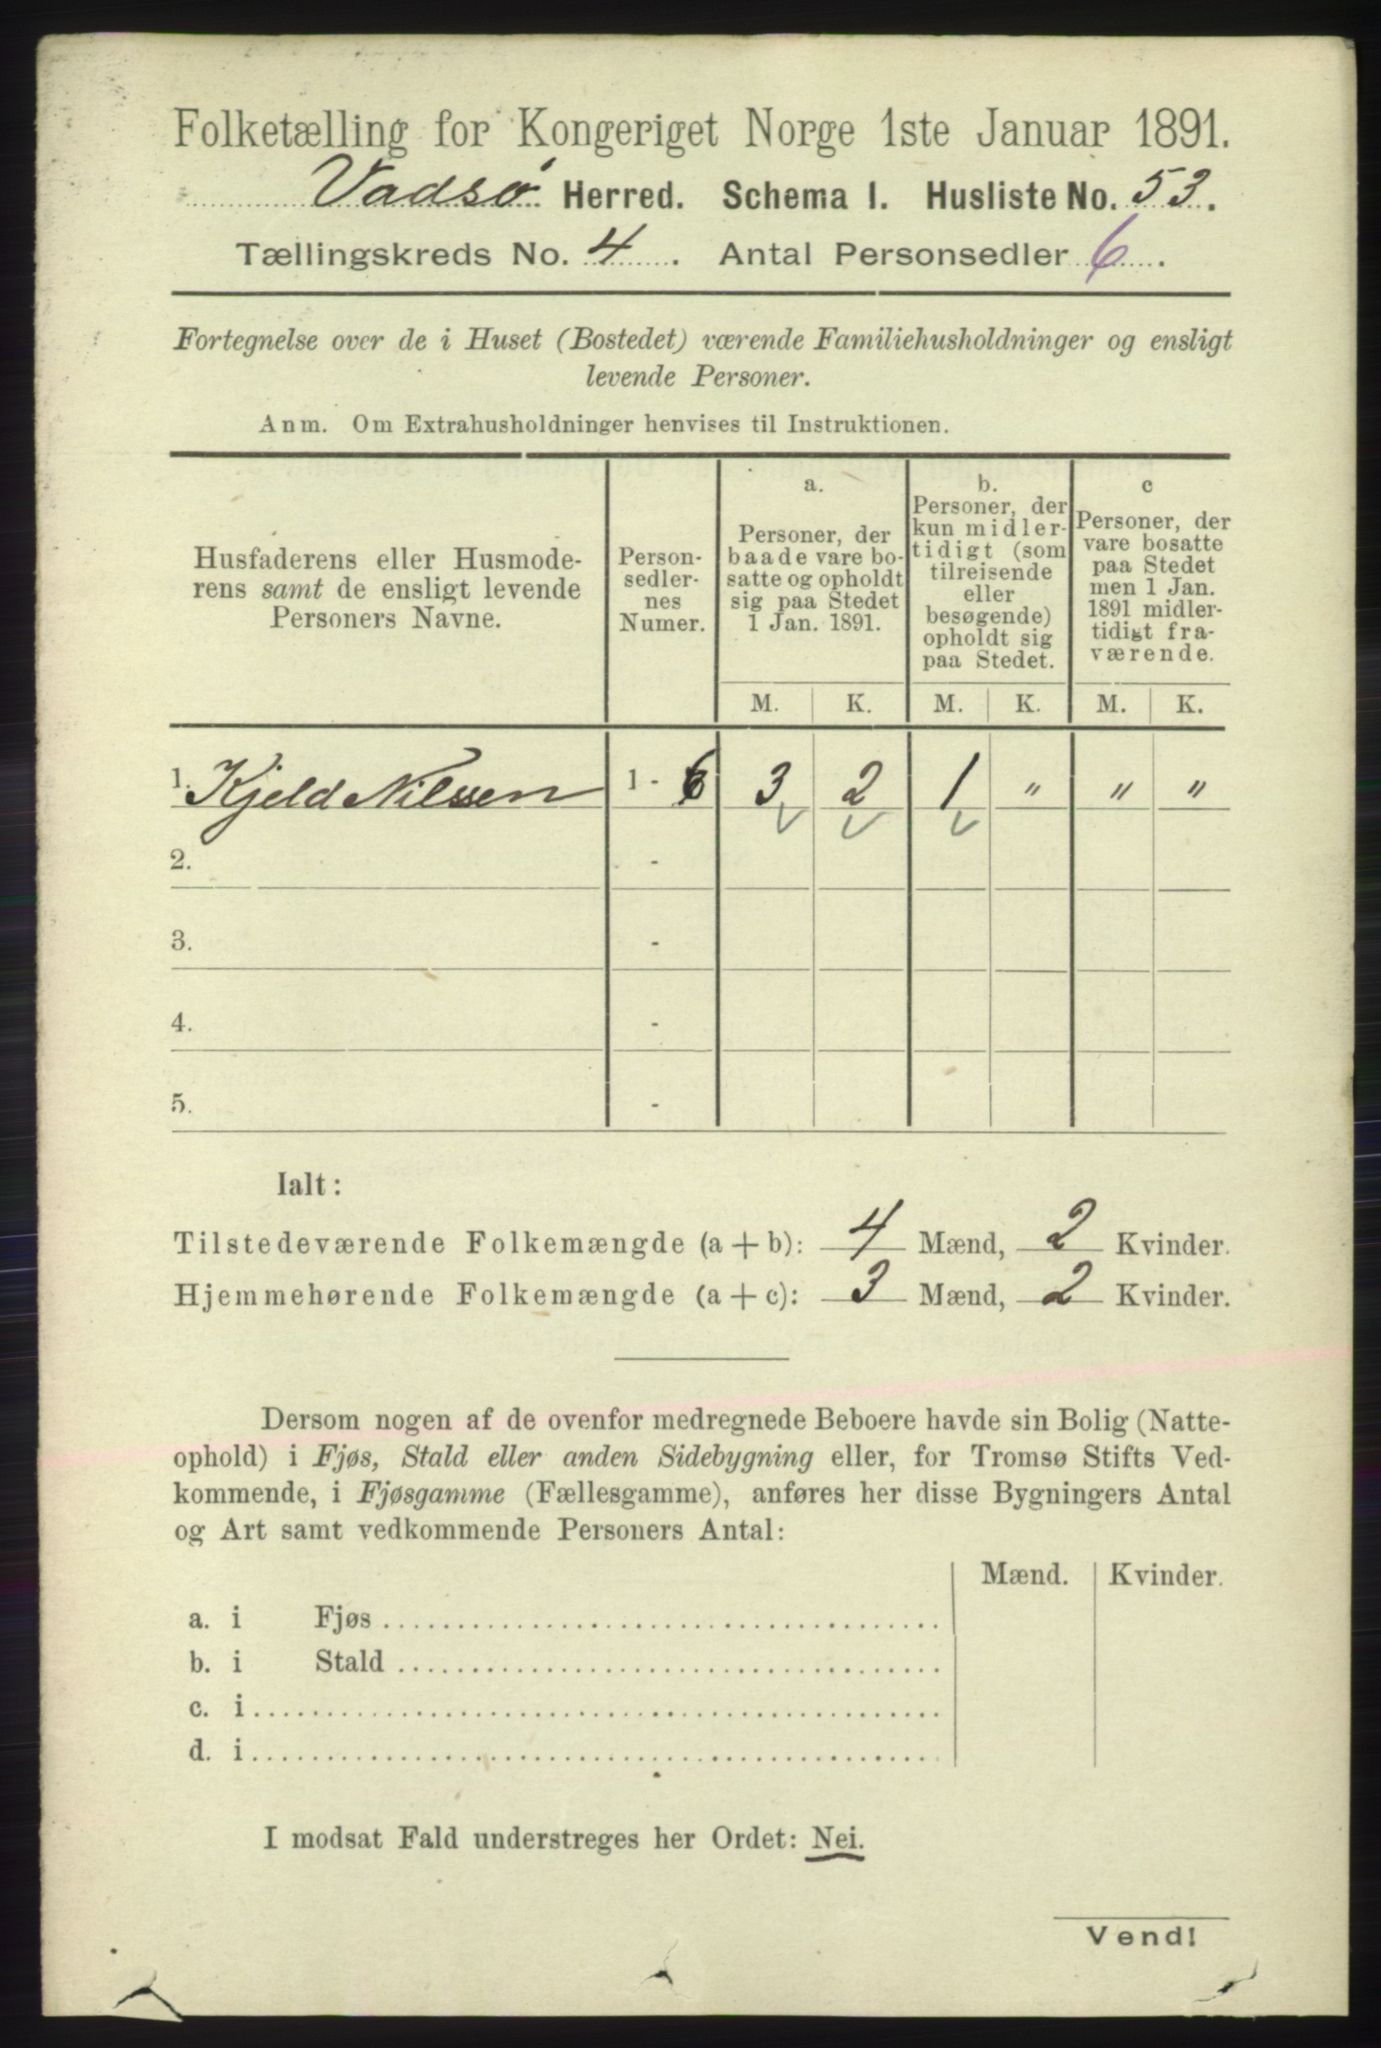 Folketælling for Kongeriget Norge 1ste Januar 1891.
Vadsø Herred. Schema I. Husliste No. 53.
Tællingskreds No. 4. Antal Personsedler 6.
Fortegnelse over de i Huset (Bostedet) værende Familiehusholdninger og ensligt
levende Personer.
Anm. Om Extrahusholdninger henvises til Instruktionen.
Husfaderens eller Husmode-
rens samt de ensligt levende
Personers Navne.
Person-
sedler-
nes
Numer.
a.
Personer, der
baade vare bo-
satte og opholdt
sig paa Stedet
1 Jan. 1891.
b.
Personer, der
kun midler-
tidigt (som
tilreisende
eller
besøgende)
opholdt sig
paa Stedet.
c
Personer, der
vare bosatte
paa Stedet
men 1 Jan.
1891 midler-
tidigt fra-
værende.
M. K. M. K. M. K.
1. Kjeld Nilssen 1 - 6 3 2 1 " " "
2. -
3. -
4. -
5. -
Ialt:
Tilstedeværende Folkemængde (a + b): 4 Mænd, 2 Kvinder.
Hjemmehørende Folkemængde (a + c): 3 Mænd, 2 Kvinder.
Dersom nogen af de ovenfor medregnede Beboere havde sin Bolig (Natte-
ophold) i Fjøs, Stald eller anden Sidebygning eller, for Tromsø Stifts Ved-
kommende, i Fjøsgamme (Fællesgamme), anføres her disse Bygningers Antal
og Art samt vedkommende Personers Antal:
Mænd. Kvinder.
a. i Fjøs
b. i Stald
c. i
d. i
I modsat Fald understreges her Ordet: Nei.
Vend!